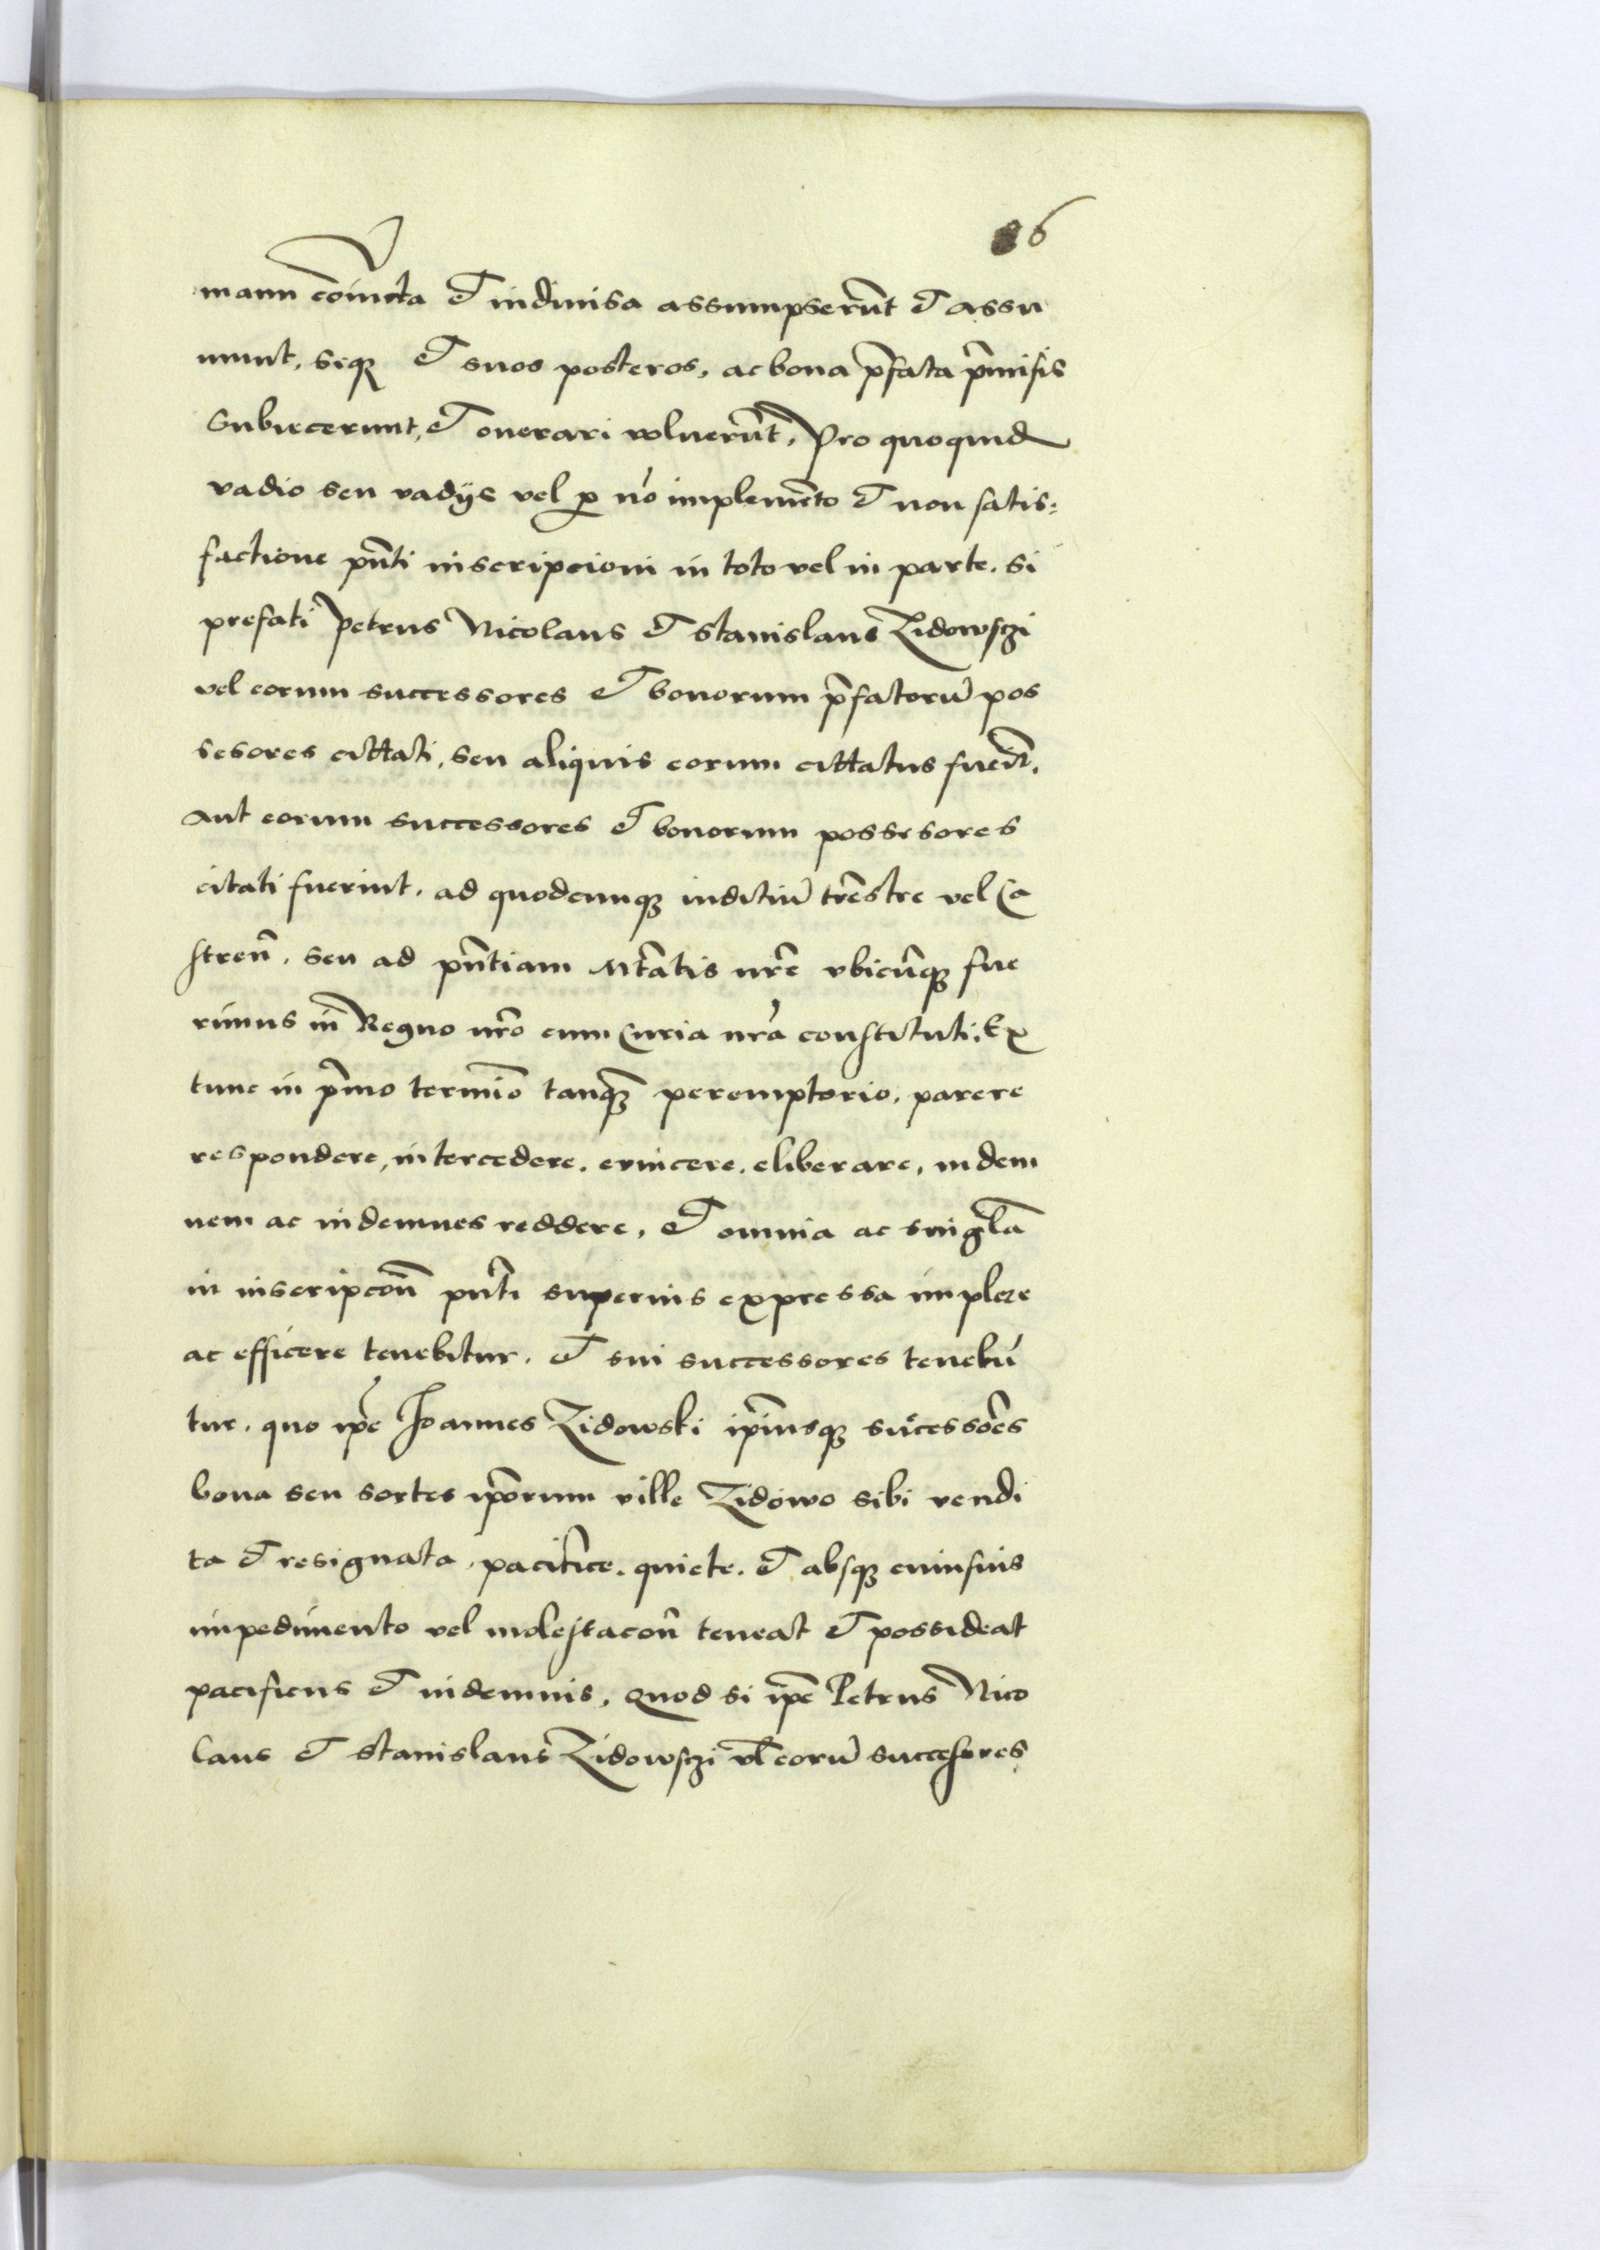 86
manu cōiuncta et indiuisa assumpserūt et assu
munt, seqꝫ et suos posteros, ac bona p̄fata p̄missis
Subiecerunt, et onerari voluerūt, Pro quoquid
vadio seu vadijs vel ꝓ nō implemēto et non satis=
factione pn̄ti inscripcioni in toto vel in parte. si
prefati Petrus Nicolaus et Stanislaus Zidowsczi
vel eorum successores et bonorum p̄fatorū pos
sesores cittati, seu aliquis eorum cittatus fuerit,
aut eorum successores et bonorum possesores
citati fuerint, ad quodcunqꝫ iuditiū tr̄estre vel Ca
stren̄, seu ad pn̄tiam Mt̄atis nr̄e vbicūqꝫ fue
rimus in Regno nr̄o cum Curia nr̄a constituti, Ex
tunc in p̄mo termīo tanq̄ꝫ peremptorio, parere
respondere, intercedere, euincere, eliberare, indem
nem ac indemnes reddere, et omnia ac singl̄a
in inscripcōn̄ pn̄ti superius expressa implere
ac efficere tenebitur, et sui successores tenebū
tur, quo ip̄e Joannes Zidowski ip̄iusqꝫ suc̄cessōres
bona seu sortes ip̄orum ville Zidowo sibi vendi
ta et resignata, pacifice, quiete, et absqꝫ cuiusuis
impedimento vel molestacōn̄ teneat et possideat
pacificus et indemnis, Quod si ip̄e Petrus Nico
laus et Stanislaus Zidowsczi vl̄ eorū successores